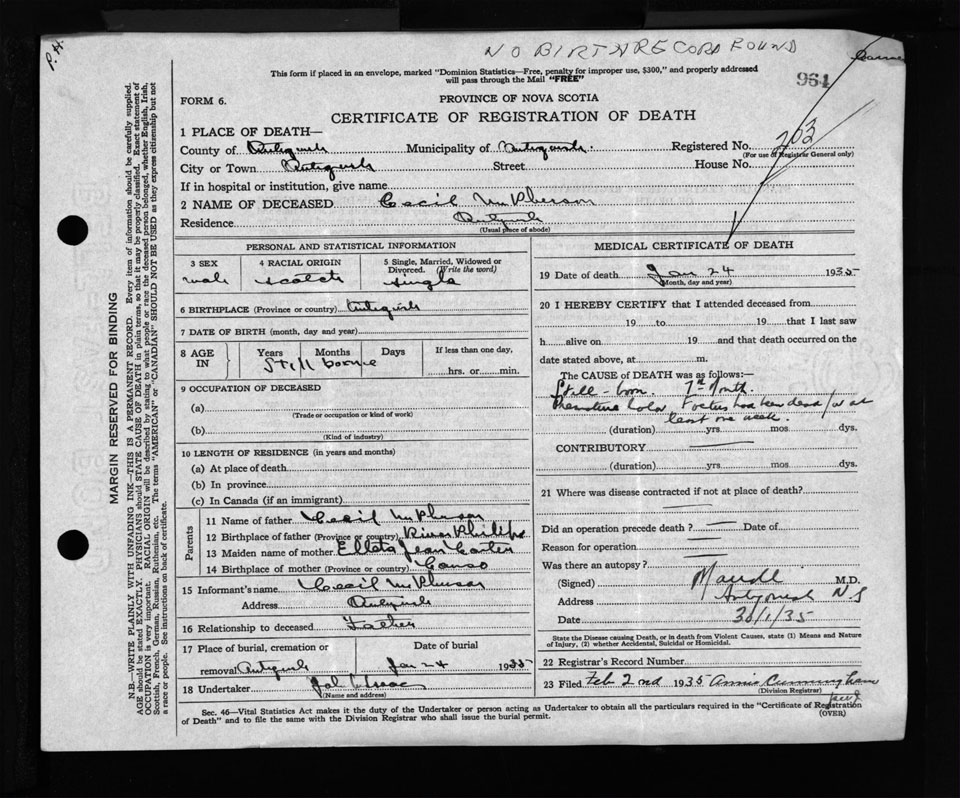 P. H.
NO BIRTH RECORD FOUND
This form if placed in an envelope, marked "Dominion Statistics—Free, penalty for improper use, $300," and properly addressed
will pass through the Mail "FREE"
964
FORM 6.
PROVINCE OF NOVA SCOTIA
CERTIFICATE OF REGISTRATION OF DEATH
1 PLACE OF DEATH—
County of Antigonish Municipality of Antigonish. Registered No. 203
(For use of Registrar General only)
City or Town Antigonish Street House No.
If in hospital or institution, give name
2 NAME OF DECEASED Cecil McPherson
Residence Antigonish
(Usual place of abode)
PERSONAL AND STATISTICAL INFORMATION
3 SEX 4 RACIAL ORIGIN 5 Single, Married, Widowed or
Divorced. (Write the word)
male scotch single
6 BIRTHPLACE (Province or country) Antigonish
7 DATE OF BIRTH (month, day and year)
8 AGE IN Years Months Days If less than one day,
Still borne
hrs. or min.
9 OCCUPATION OF DECEASED
(a)
(Trade or occupation or kind of work)
(b)
(Kind of industry)
10 LENGTH OF RESIDENCE (in years and months)
(a) At place of death
(b) In province
(c) In Canada (if an immigrant)
Parents
11 Name of father Cecil McPherson
12 Birthplace of father (Province or country) River Philip
13 Maiden name of mother Jean Carter
14 Birthplace of mother (Province or country) Canso
15 Informant's name Cecil McPherson
Address Antigonish
16 Relationship to deceased Father
17 Place of burial, cremation or Date of burial
removal Antigonish Jan 24 1935
18 Undertaker
(Name and address)
MEDICAL CERTIFICATE OF DEATH
19 Date of death Jan 24 1935
(Month, day and year)
20 I HEREBY CERTIFY that I attended deceased from
19 to 19 that I last saw
h alive on 19 and that death occurred on the
date stated above, at m.
The CAUSE of DEATH was as follows:
Still-born. 7th Month.
Foetus had been dead for at
least one week.
(duration) yrs. mos. dys.
CONTRIBUTORY
(duration) yrs. mos. dys.
21 Where was disease contracted if not at place of death?
Did an operation precede death? Date of
Reason for operation
Was there an autopsy?
(Signed) M.D.
Address Antigonish N.S
Date 30/1/35
State the Disease causing Death, or in death from Violent Causes, state (1) Means and Nature
of Injury, (2) whether Accidental, Suicidal or Homicidal.
22 Registrar's Record Number
23 Filed Feb 2nd 1935 Annie Cunningham
(Division Registrar)
Sec. 46—Vital Statistics Act makes it the duty of the Undertaker or person acting as Undertaker to obtain all the particulars required in the "Certificate of Registration
of Death" and to file the same with the Division Registrar who shall issue the burial permit.
(OVER)
MARGIN RESERVED FOR BINDING
N.B.—WRITE PLAINLY WITH UNFADING INK—THIS IS A PERMANENT RECORD. Every item of information should be carefully supplied.
AGE should be stated EXACTLY. PHYSICIANS should STATE CAUSE OF DEATH in plain terms, so that it may be properly classified. Exact statement of
OCCUPATION is very important. RACIAL ORIGIN will be described by stating to what people or race the deceased person belonged, whether English, Irish,
Scottish, French, German, Russian, Ruthenian, etc. The terms "AMERICAN" or "CANADIAN" SHOULD NOT BE USED as they express citizenship but not
a race or people. See instructions on back of certificate.